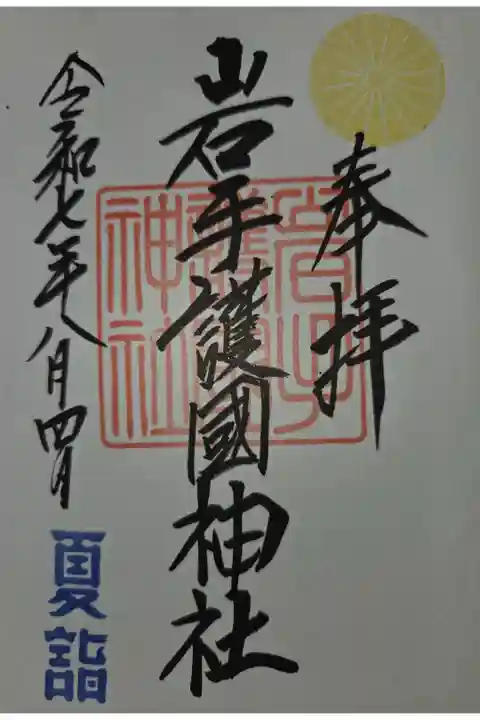 奉拝
岩手護國神社
岩手
護國
神社
令和七年八月四日
夏詣